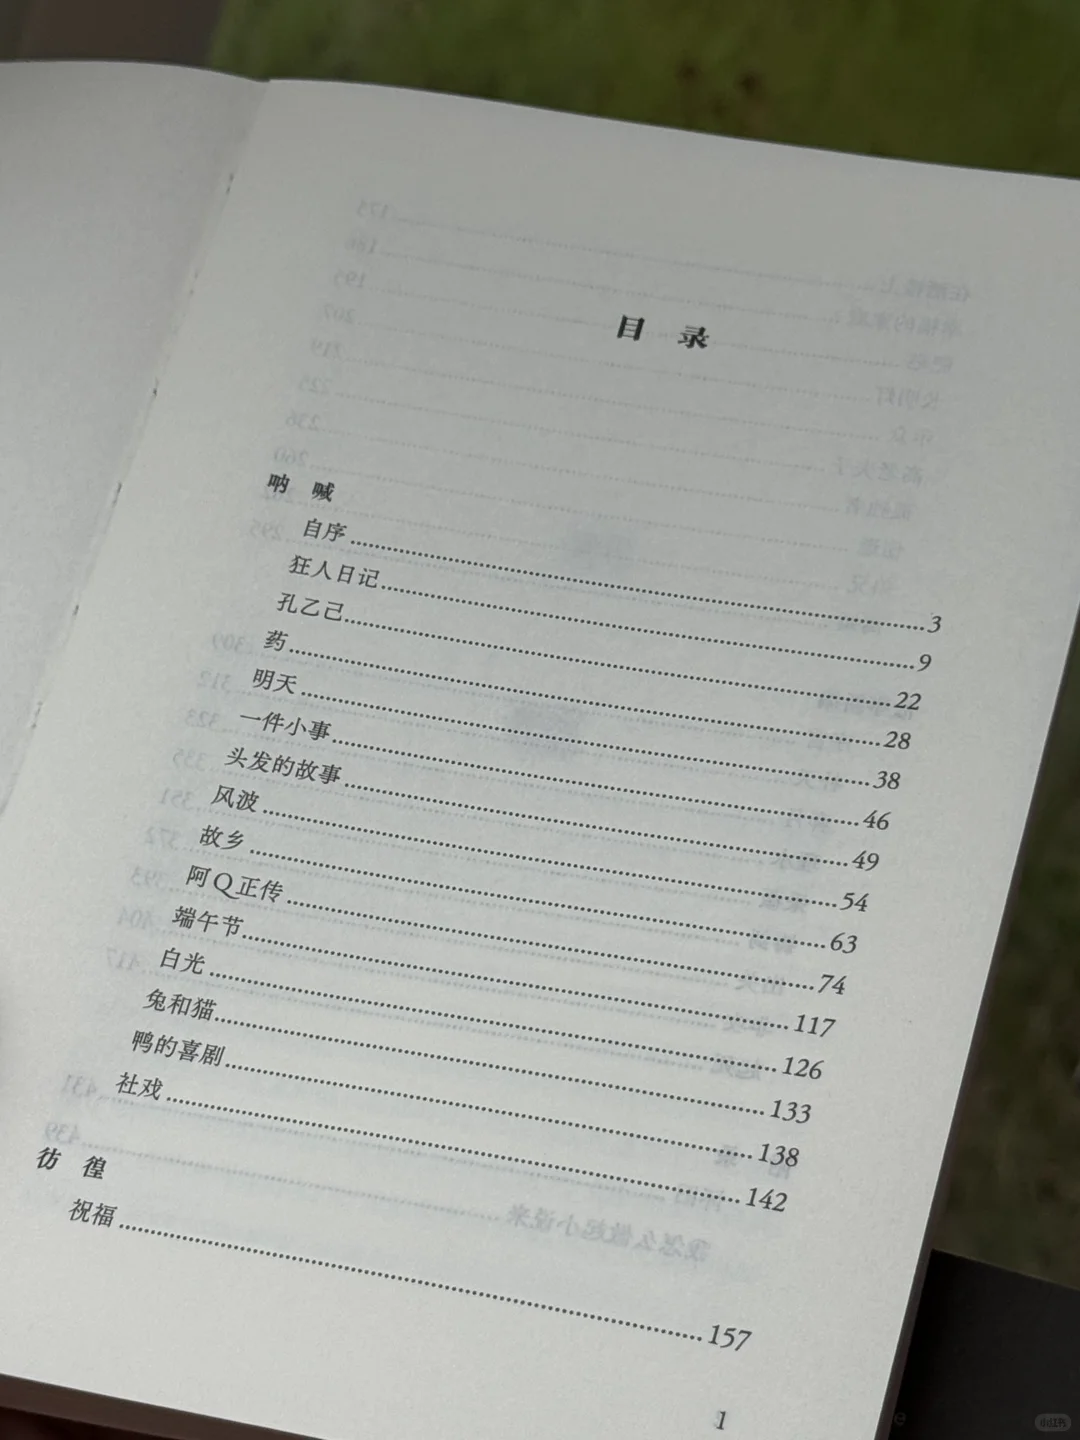 目 录
呐 喊
自序 3
狂人日记 9
孔乙己 22
药 28
明天 38
一件小事 46
头发的故事 49
风波 54
故乡 63
阿Q正传 74
端午节 117
白光 126
兔和猫 133
鸭的喜剧 138
社戏 142
彷 徨
祝福 157
1